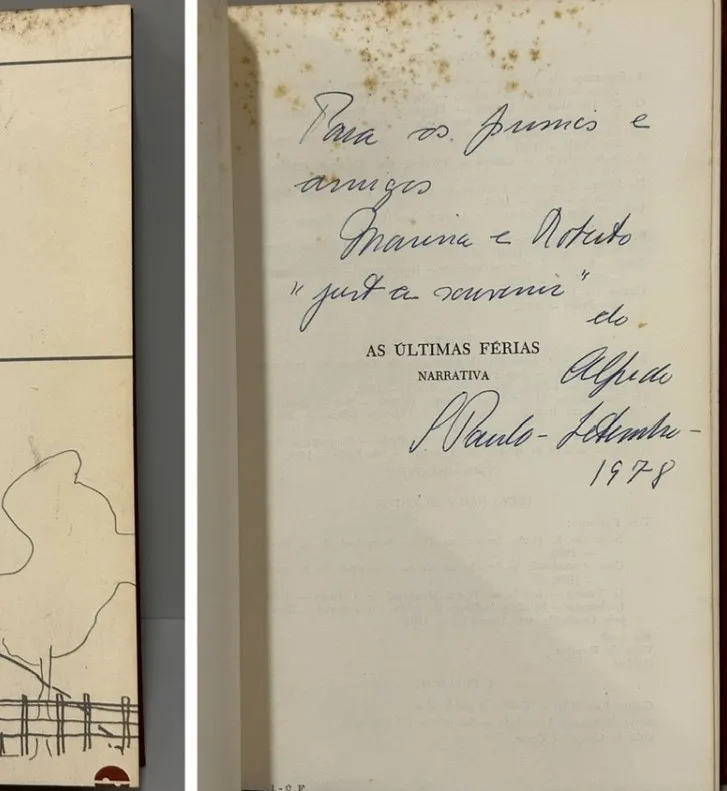 Para os primos e
amigos
Marina e Roberto
"just a souvenir"
do
AS ÚLTIMAS FÉRIAS
Alfredo
NARRATIVA
S. Paulo - Setembro -
1978